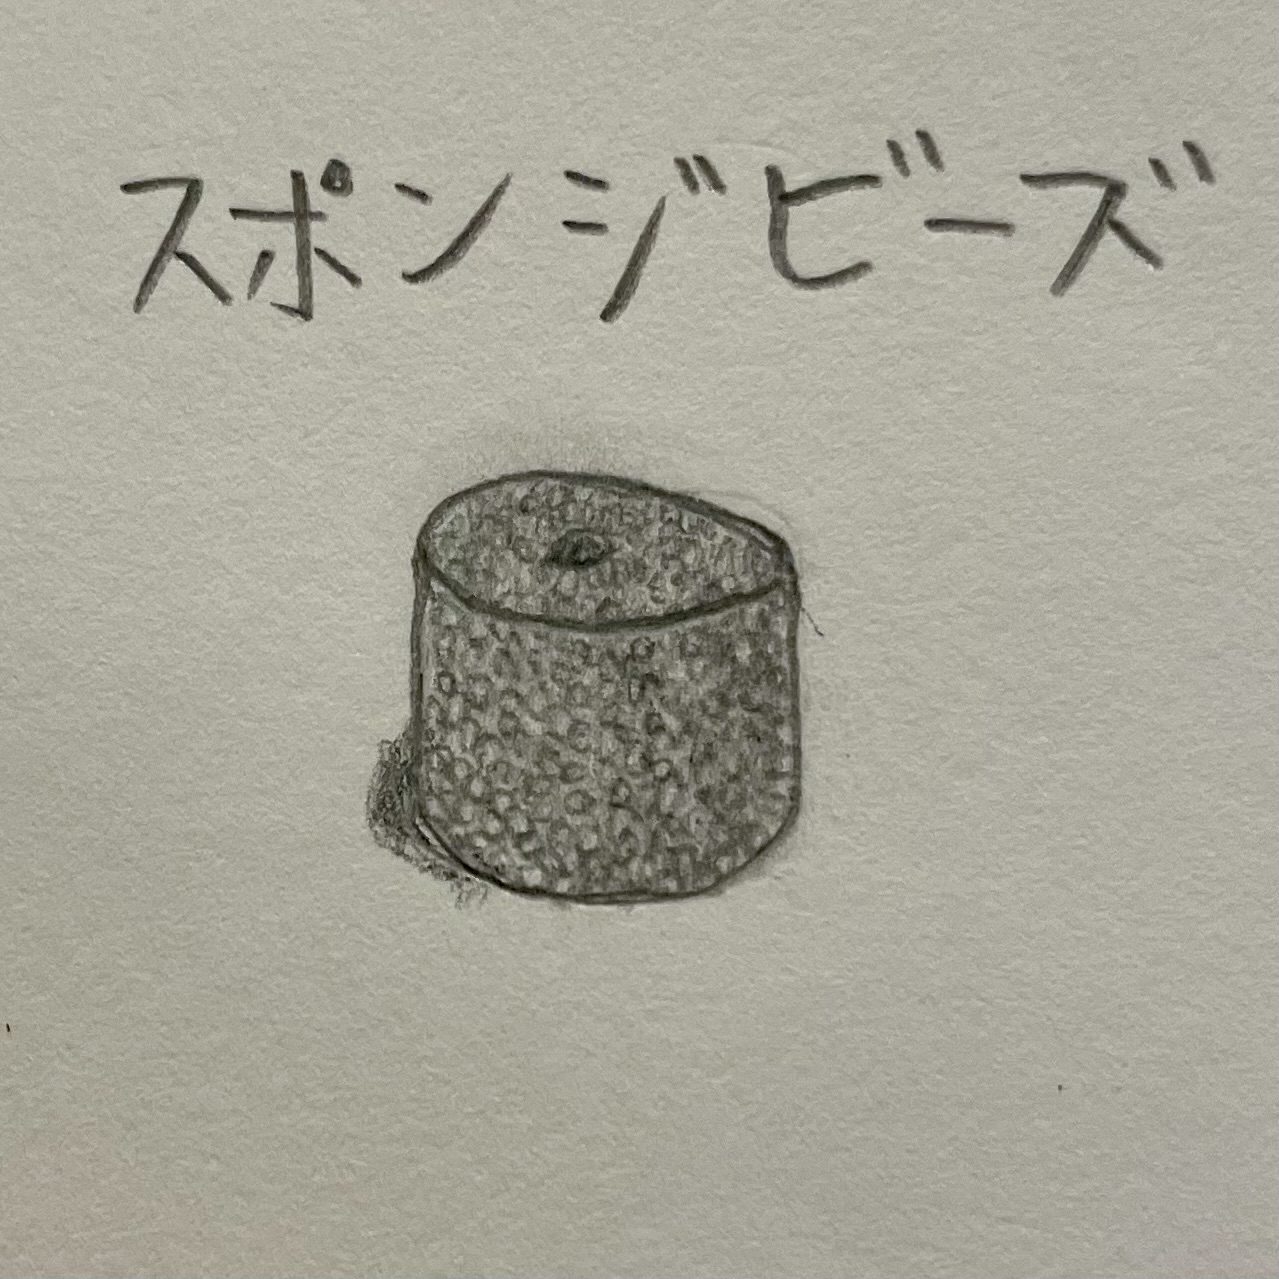 スポンジビーズ